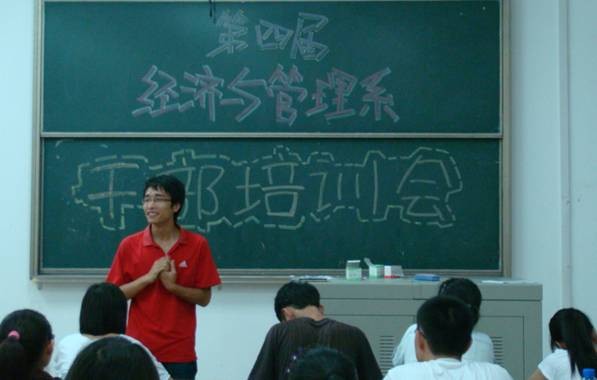 第四届
经济与管理系
干部培训会